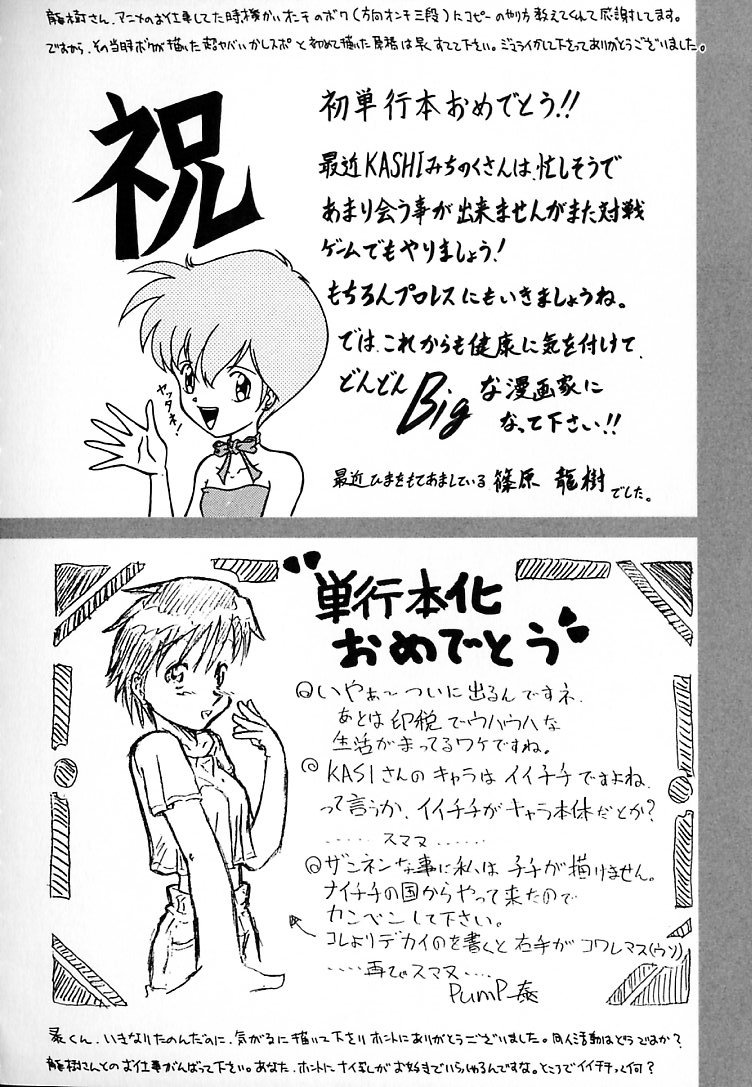 龍樹さん、アニメのお仕事してた時機かいオンチのボク(方向オンチ三段)にコピーのやり方教えてくれて感謝してます。
ですから、その当時ボクが描いた超ヤバいかしスポと初めて描いた原稿は早くすてて下さい。ジュライかして下さってありがとうございました。
祝
初単行本おめでとう!!
最近KASHIみちのくさんは、忙しそうで
あまり会う事が出来ませんがまた対戦
ゲームでもやりましょう!
もちろんプロレスにもいきましょうね。
では、これからも健康に気を付けて、
どんどんBigな漫画家に
なって下さい!!
ヤッタネ!
最近ひまをもてあましている 篠原 龍樹でした。
単行本化
おめでとう
いやぁ〜ついに出るんですネ.
あとは印税でウハウハな
生活がまってるワケですね。
KASIさんのキャラはイイチチですよね.
って言うか、イイチチがキャラ本体だとか?
……スマヌ……
ザンネンな事に私は チチが描けません。
ナイチチの国からやって来たので
カンベンして下さい。
コレよりデカイのを書くと右手がコワレマス(ウソ)
……再びスマヌ……
PUMP
くん、いきなりたのんだのに、気がるに描いて下さりホントにありがとうございました。同人活動はどうですか?
龍樹さんとのお仕事がんばって下さい。あなた、ホントにナイ乳がお好きでいらっしゃるんですな。ところでイイチチって何?